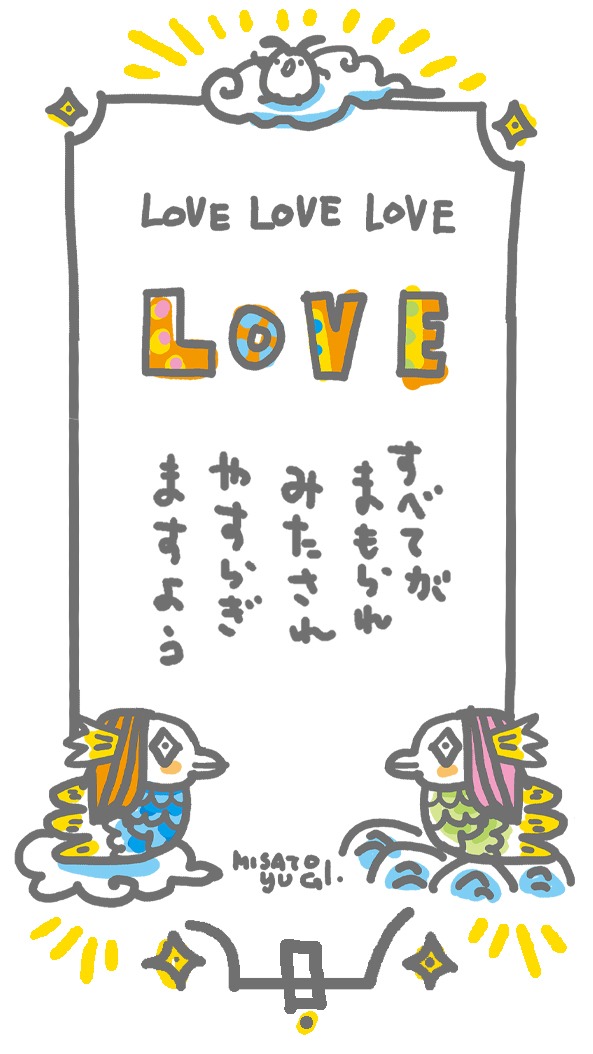 LOVE LOVE LOVE
LOVE
すべてが
まもられ
みたされ
やすらぎ
ますよう
MISATO
YUGI.